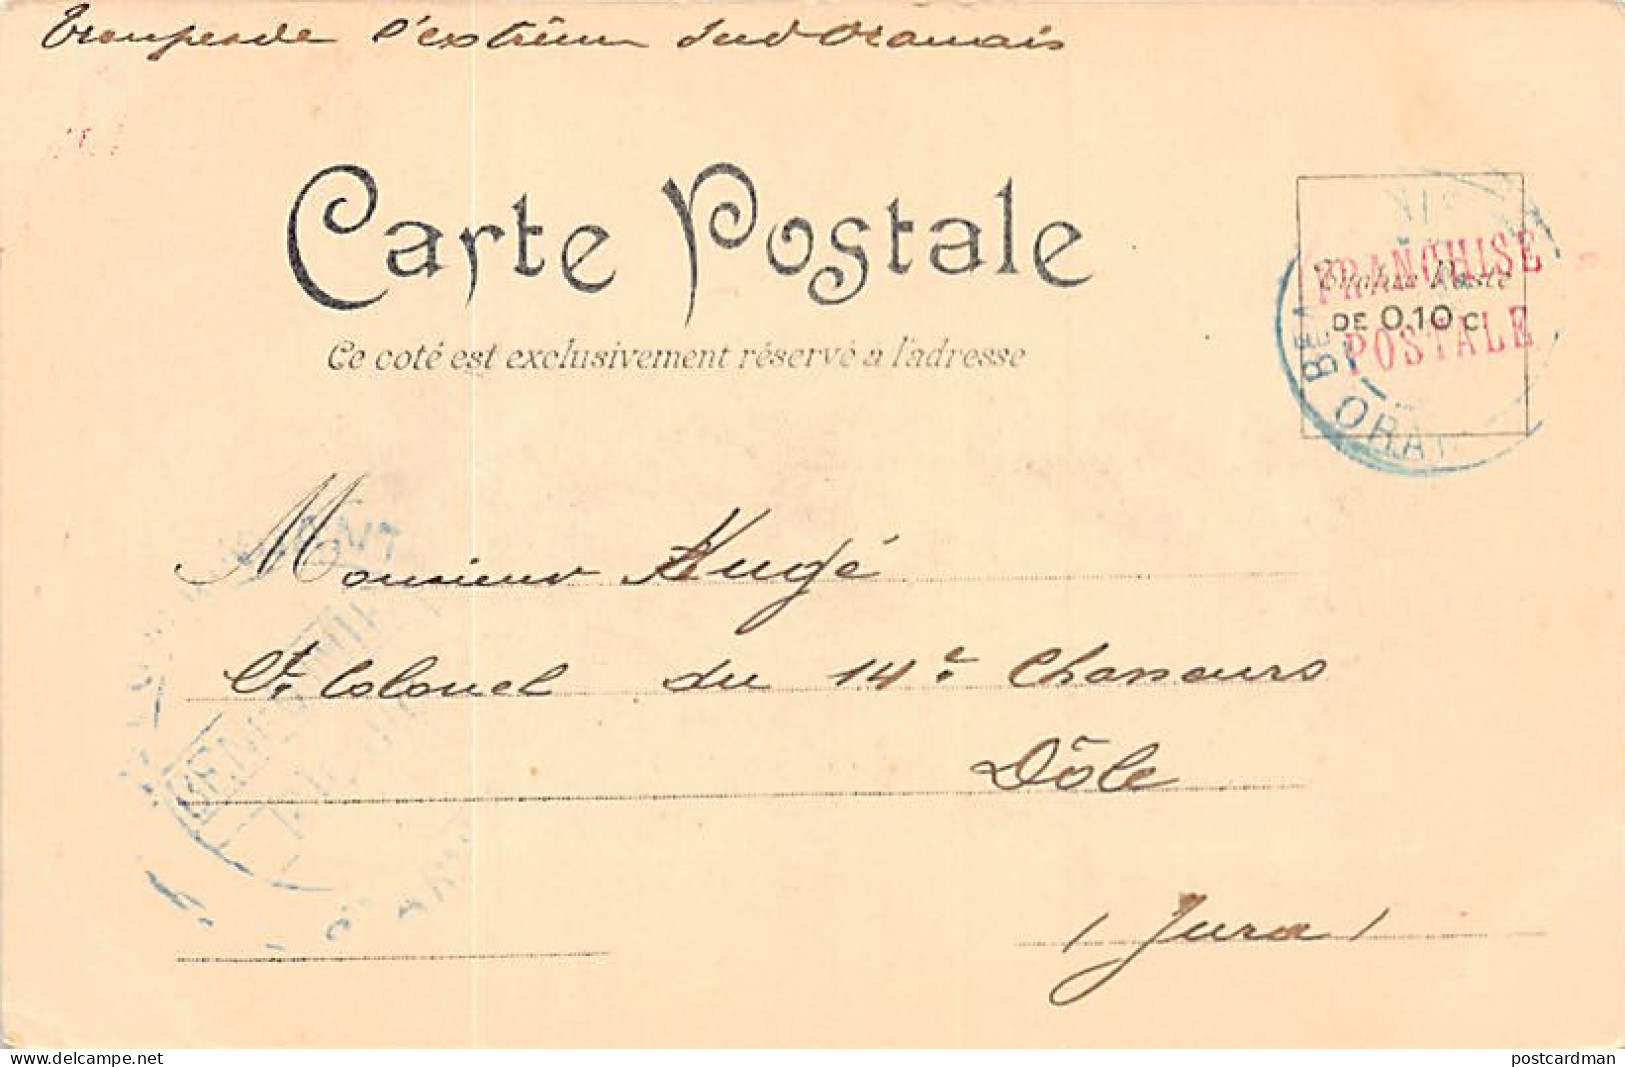 Troupes de l'extrême Sud Oranais
Carte Postale
Ce coté est exclusivement réservé a l'adresse
FRANCHISE
POSTALE
Timbre Poste
DE 0,10 c.
ORAN
Monsieur Hugé
Lt Colonel du 14e Chasseurs
Dôle
(Jura)
delcampe.net
postcardman